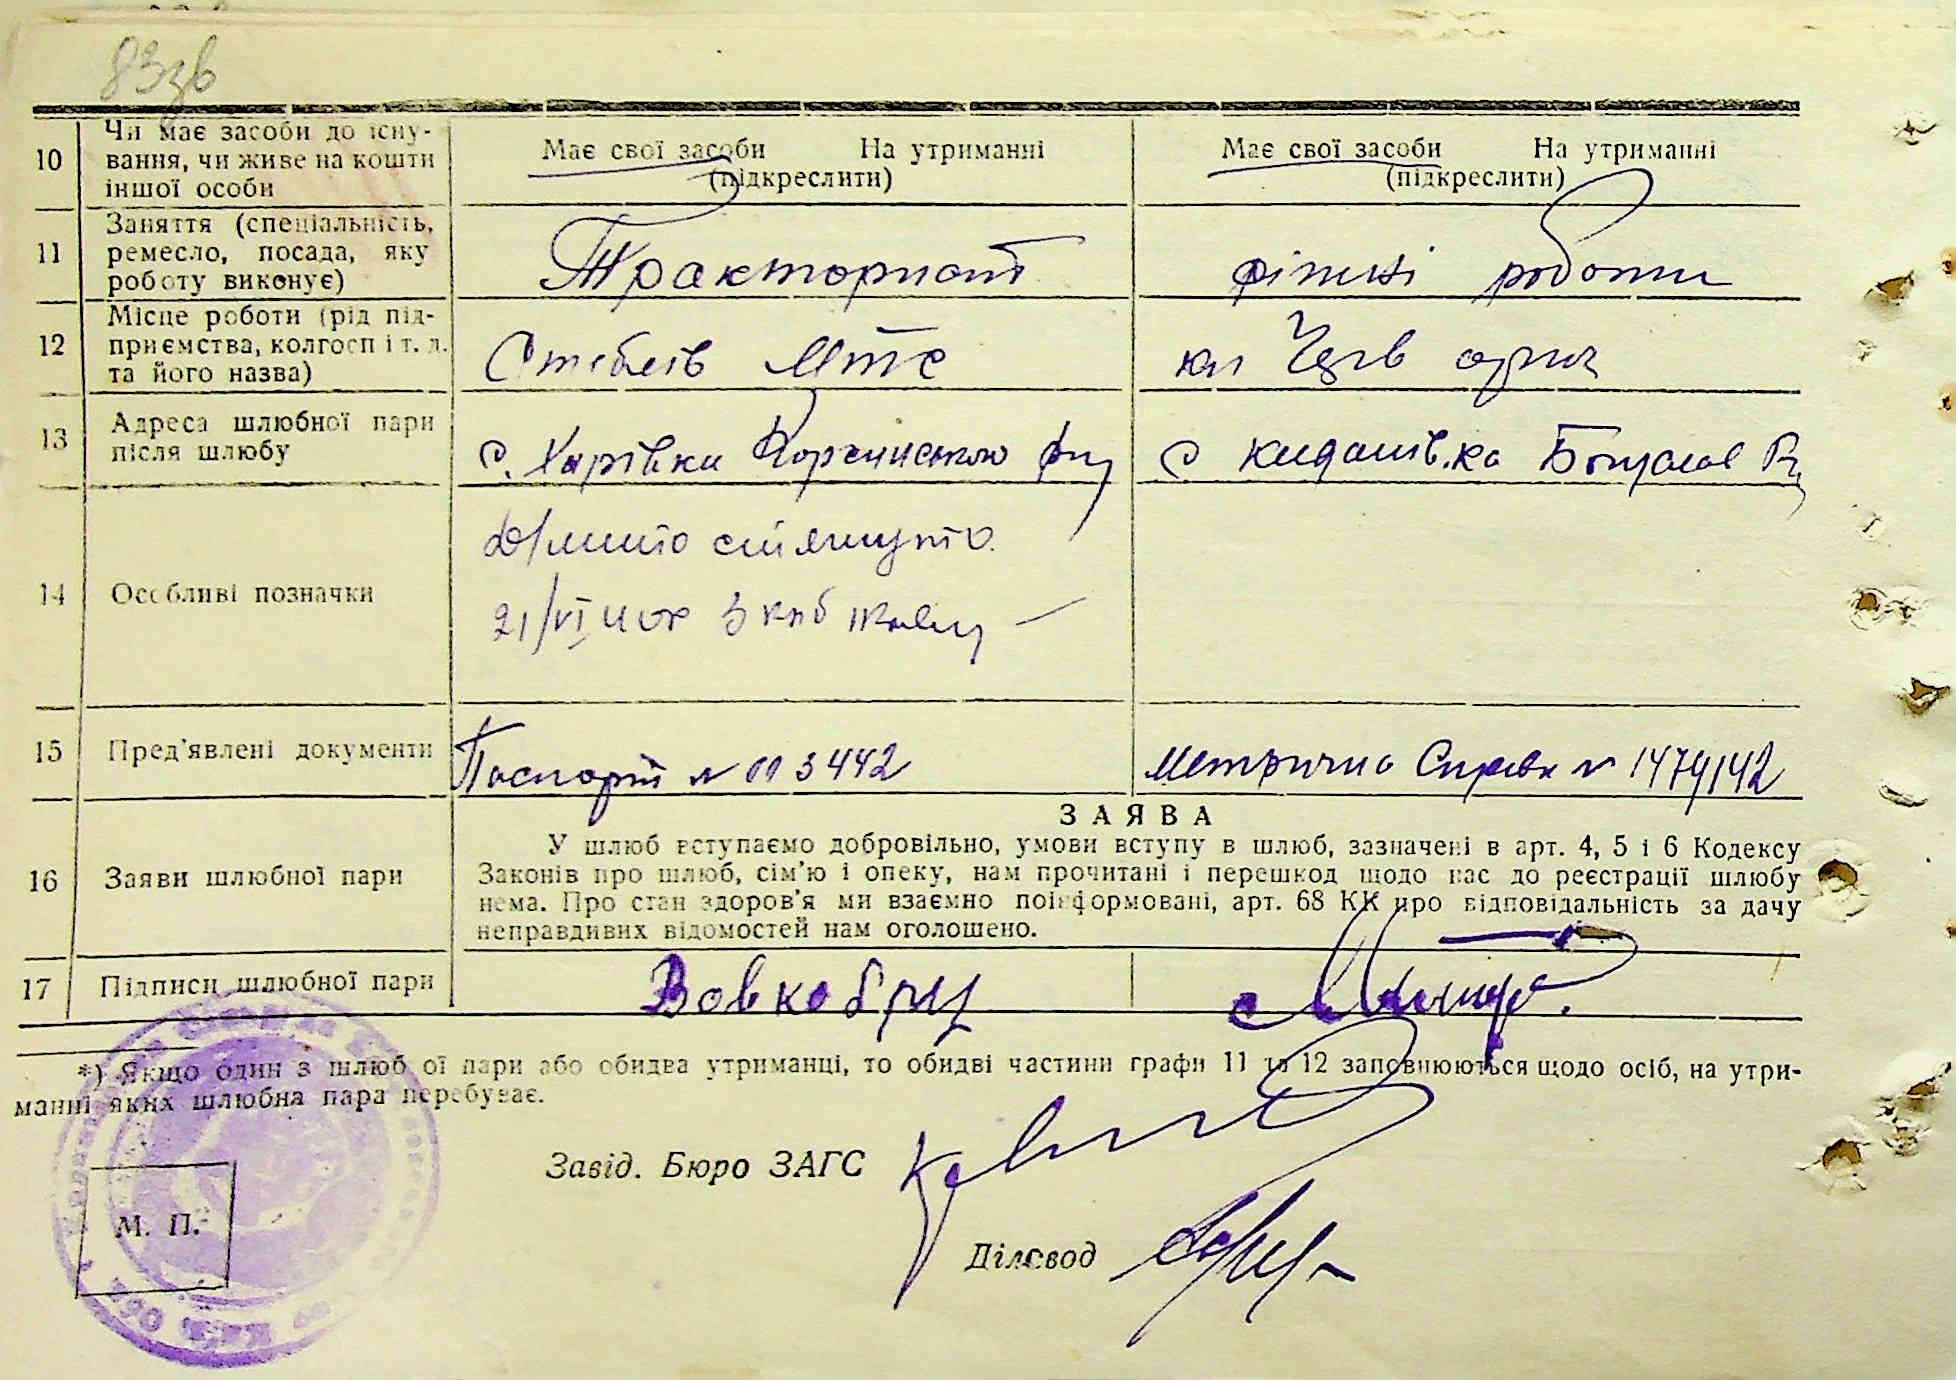 83зв
10 Чи має засоби до існу-
вання, чи живе на кошти
іншої особи
Має свої засоби На утриманні
(підкреслити)
Має свої засоби На утриманні
(підкреслити)
11 Заняття (спеціальність,
ремесло, посада, яку
роботу виконує)
Тракторист
ріжні роботи
12 Місце роботи (рід під-
приємства, колгосп і т. д.
та його назва)
Стеблів МТС
13 Адреса шлюбної пари
після шлюбу
с. Корсунського
с Кидашівка Богуслав
14 Особливі позначки
Мито стягнуто
21/VI 3 крб
15 Пред'явлені документи
Паспорт № 003442
Метрична Справк № 1474142
16 Заяви шлюбної пари
ЗАЯВА
У шлюб вступаємо добровільно, умови вступу в шлюб, зазначені в арт. 4, 5 і 6 Кодексу
Законів про шлюб, сім'ю і опеку, нам прочитані і перешкод щодо нас до реєстрації шлюбу
нема. Про стан здоров'я ми взаємно поінформовані, арт. 68 КК про відповідальність за дачу
неправдивих відомостей нам оголошено.
17 Підписи шлюбної пари
Вовкобриц
*) Якщо один з шлюбної пари або обидва утриманці, то обидві частини графи 11 та 12 заповнюються щодо осіб, на утри-
манні яких шлюбна пара перебуває.
Завід. Бюро ЗАГС
М. П.
Діловод